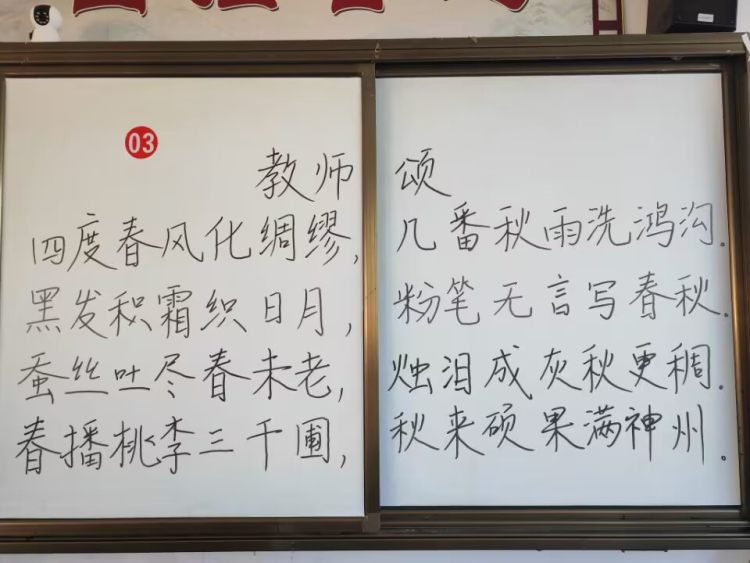 03
教师颂
四度春风化绸缪,几番秋雨洗鸿沟.
黑发积霜织日月,粉笔无言写春秋.
蚕丝吐尽春未老,烛泪成灰秋更稠.
春播桃李三千圃,秋来硕果满神州.